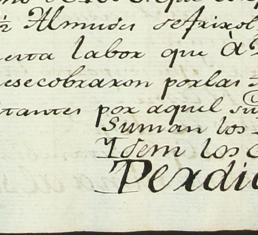 Almudes de frixol
esta labor que à
se cobraron por las
tantes por aquel su
Suman los
Idem los
Perdi